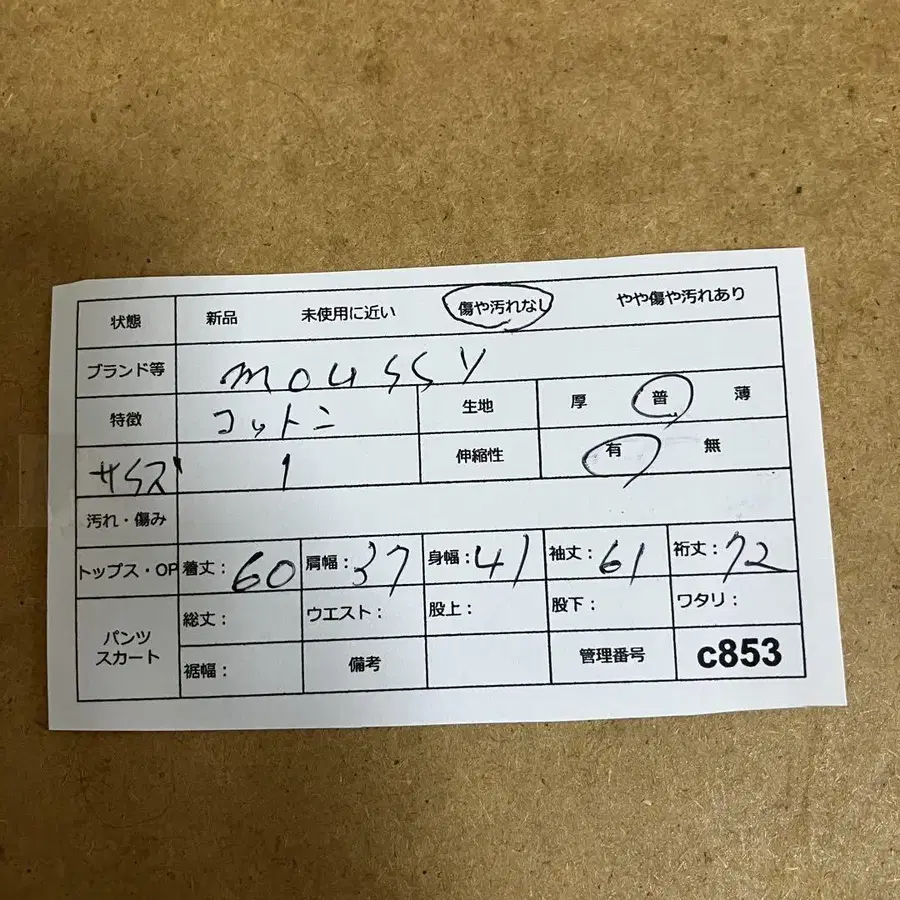 状態 新品 未使用に近い 傷や汚れなし やや傷や汚れあり
ブランド等 moussy
特徴 コットン 生地 厚 普 薄
サイズ 1 伸縮性 有 無
汚れ・傷み
トップス・OP 着丈：60 肩幅：37 身幅：41 袖丈：61 裄丈：72
パンツ 総丈： ウエスト： 股上： 股下： ワタリ：
スカート 裾幅： 備考 管理番号 c853